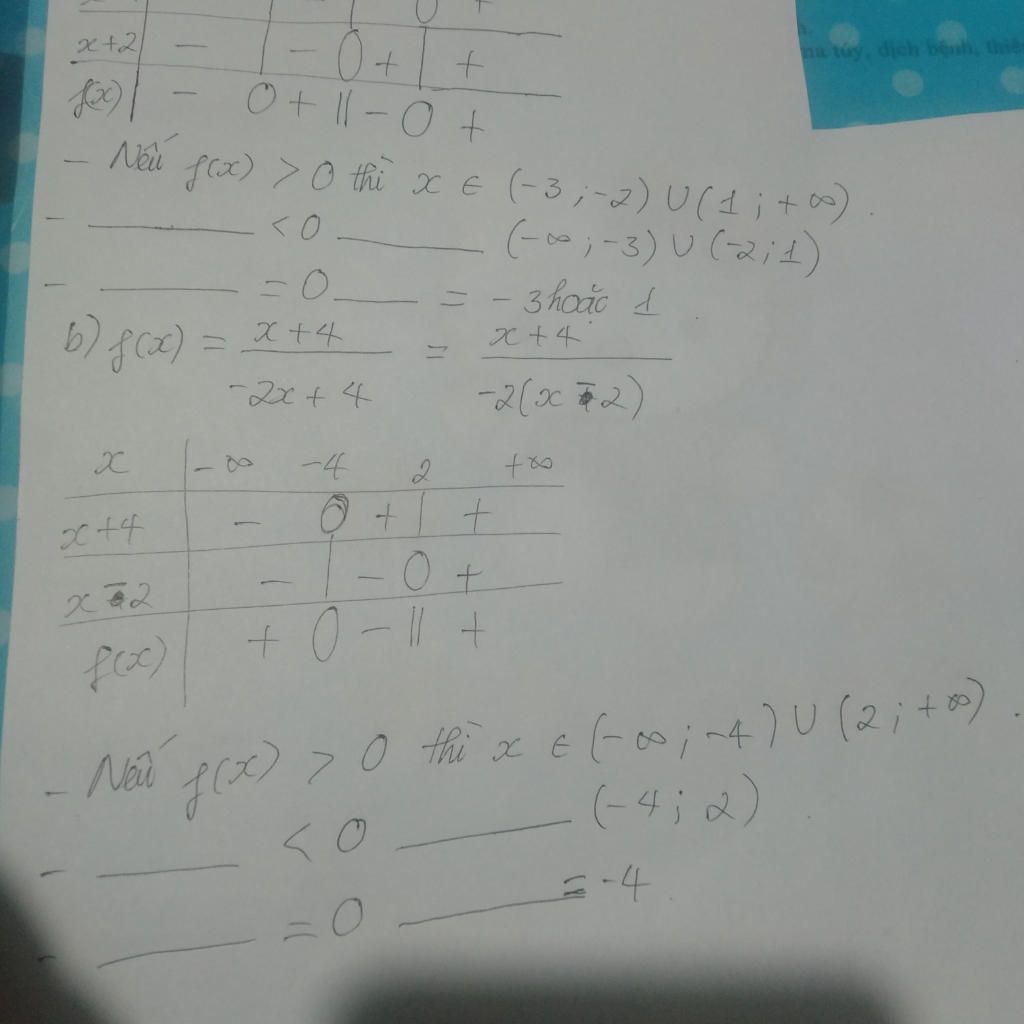 0 +
x+2 - - 0 + +
f(x) - 0 + || - 0 +
- Nếu f(x) > 0 thì x ∈ (-3 ; -2) ∪ (1 ; +∞).
- ——— < 0 ——— (-∞ ; -3) ∪ (-2 ; 1)
- ——— = 0 ——— = -3 hoặc 1.
b) f(x) = (x+4)/(-2x+4) = (x+4)/(-2(x-2))
x -∞ -4 2 +∞
x+4 - 0 + | +
x-2 - | - 0 +
f(x) + 0 - || +
- Nếu f(x) > 0 thì x ∈ (-∞ ; -4) ∪ (2 ; +∞).
- ——— < 0 ——— (-4 ; 2).
- ——— = 0 ——— = -4.
túy, dịch bệnh,